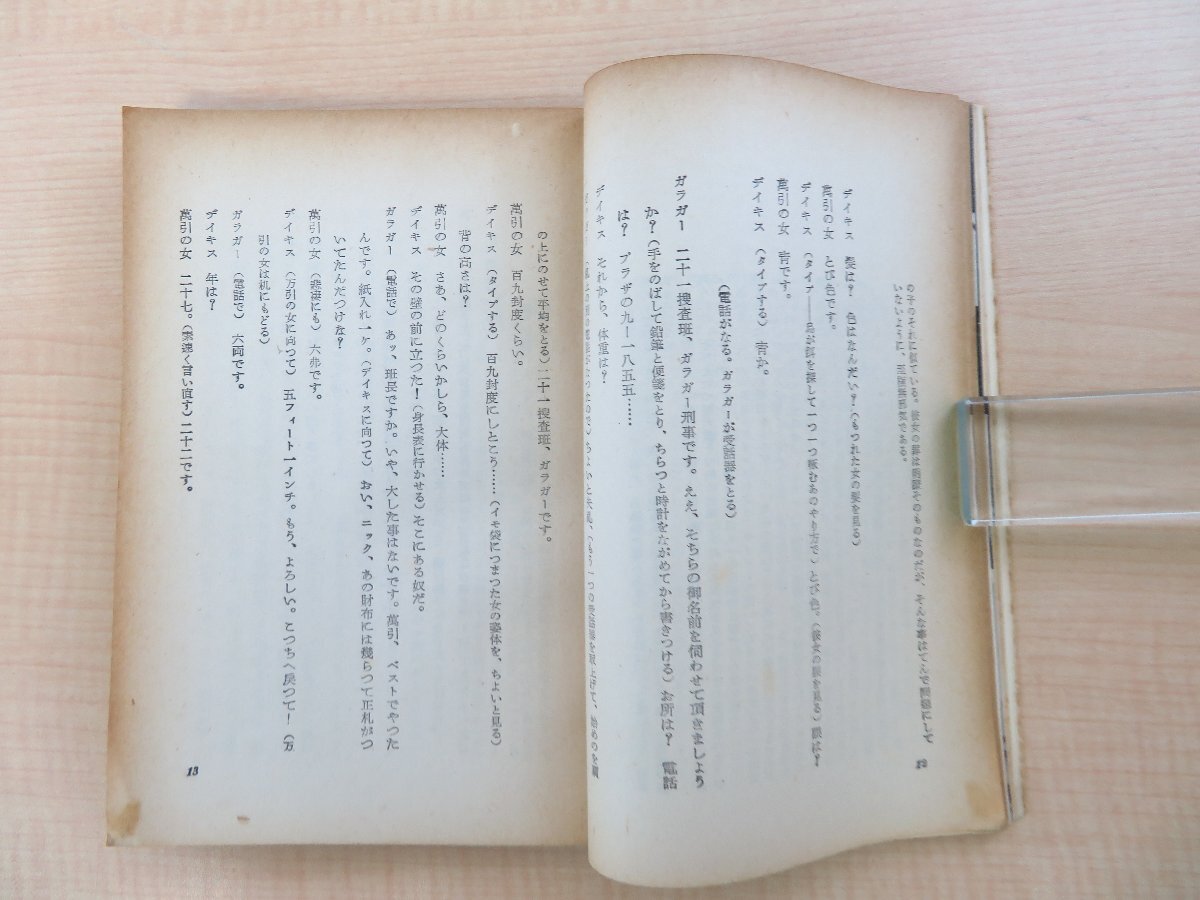 の子のそれに似ている。彼女の罪は明瞭そのものなのだが、そんな事はてんで問題にして
いないように、至極無邪気である。
デイキス 髪は？ 色はなんだい？（もつれた女の髪を見る）
萬引の女 とび色です。
デイキス （タイプ――文字を探して一つ一つ を で）とび色。（彼女の眼を見る）眼は？
萬引の女 青です。
デイキス （タイプする）青か。
（電話がなる。ガラガーが受話器をとる）
ガラガー 二十一捜査班、ガラガー刑事です。ええ、そちらの御名前を伺わせて頂きましよう
か？（手をのばして鉛筆と便箋をとり、ちらつと時計をながめてから書きつける）お所は？ 電話
は？ プラザの九―一八五五……
デイキス それから、体重は？
もう一つの受話器を取上げて、始めのを肩
の上にのせて平均をとる）二十一捜査班、ガラガーです。
萬引の女 百九封度くらい。
デイキス （タイプする）百九封度にしとこう……（イモ袋につまつた女の姿体を、ちよいと見る）
背の高さは？
萬引の女 さあ、どのくらいかしら、大体……
デイキス その壁の前に立つた！（身長表に行かせる）そこにある奴だ。
ガラガー （電話で）あッ、班長ですか。いや、大した事はないです。萬引、ベストでやつた
んです。紙入れ一ケ。（デイキスに向つて）おい、ニック、あの財布には幾らつて正札がつ
いてたんだつけな？
萬引の女 （悲凄にも）六弗です。
デイキス （万引の女に向つて）五フィート一インチ。もう、よろしい。こつちへ戻つて！（万
引の女は机にもどる）
ガラガー （電話で）六両です。
デイキス 年は？
萬引の女 二十七。（素速く言い直す）二十二です。
12
13